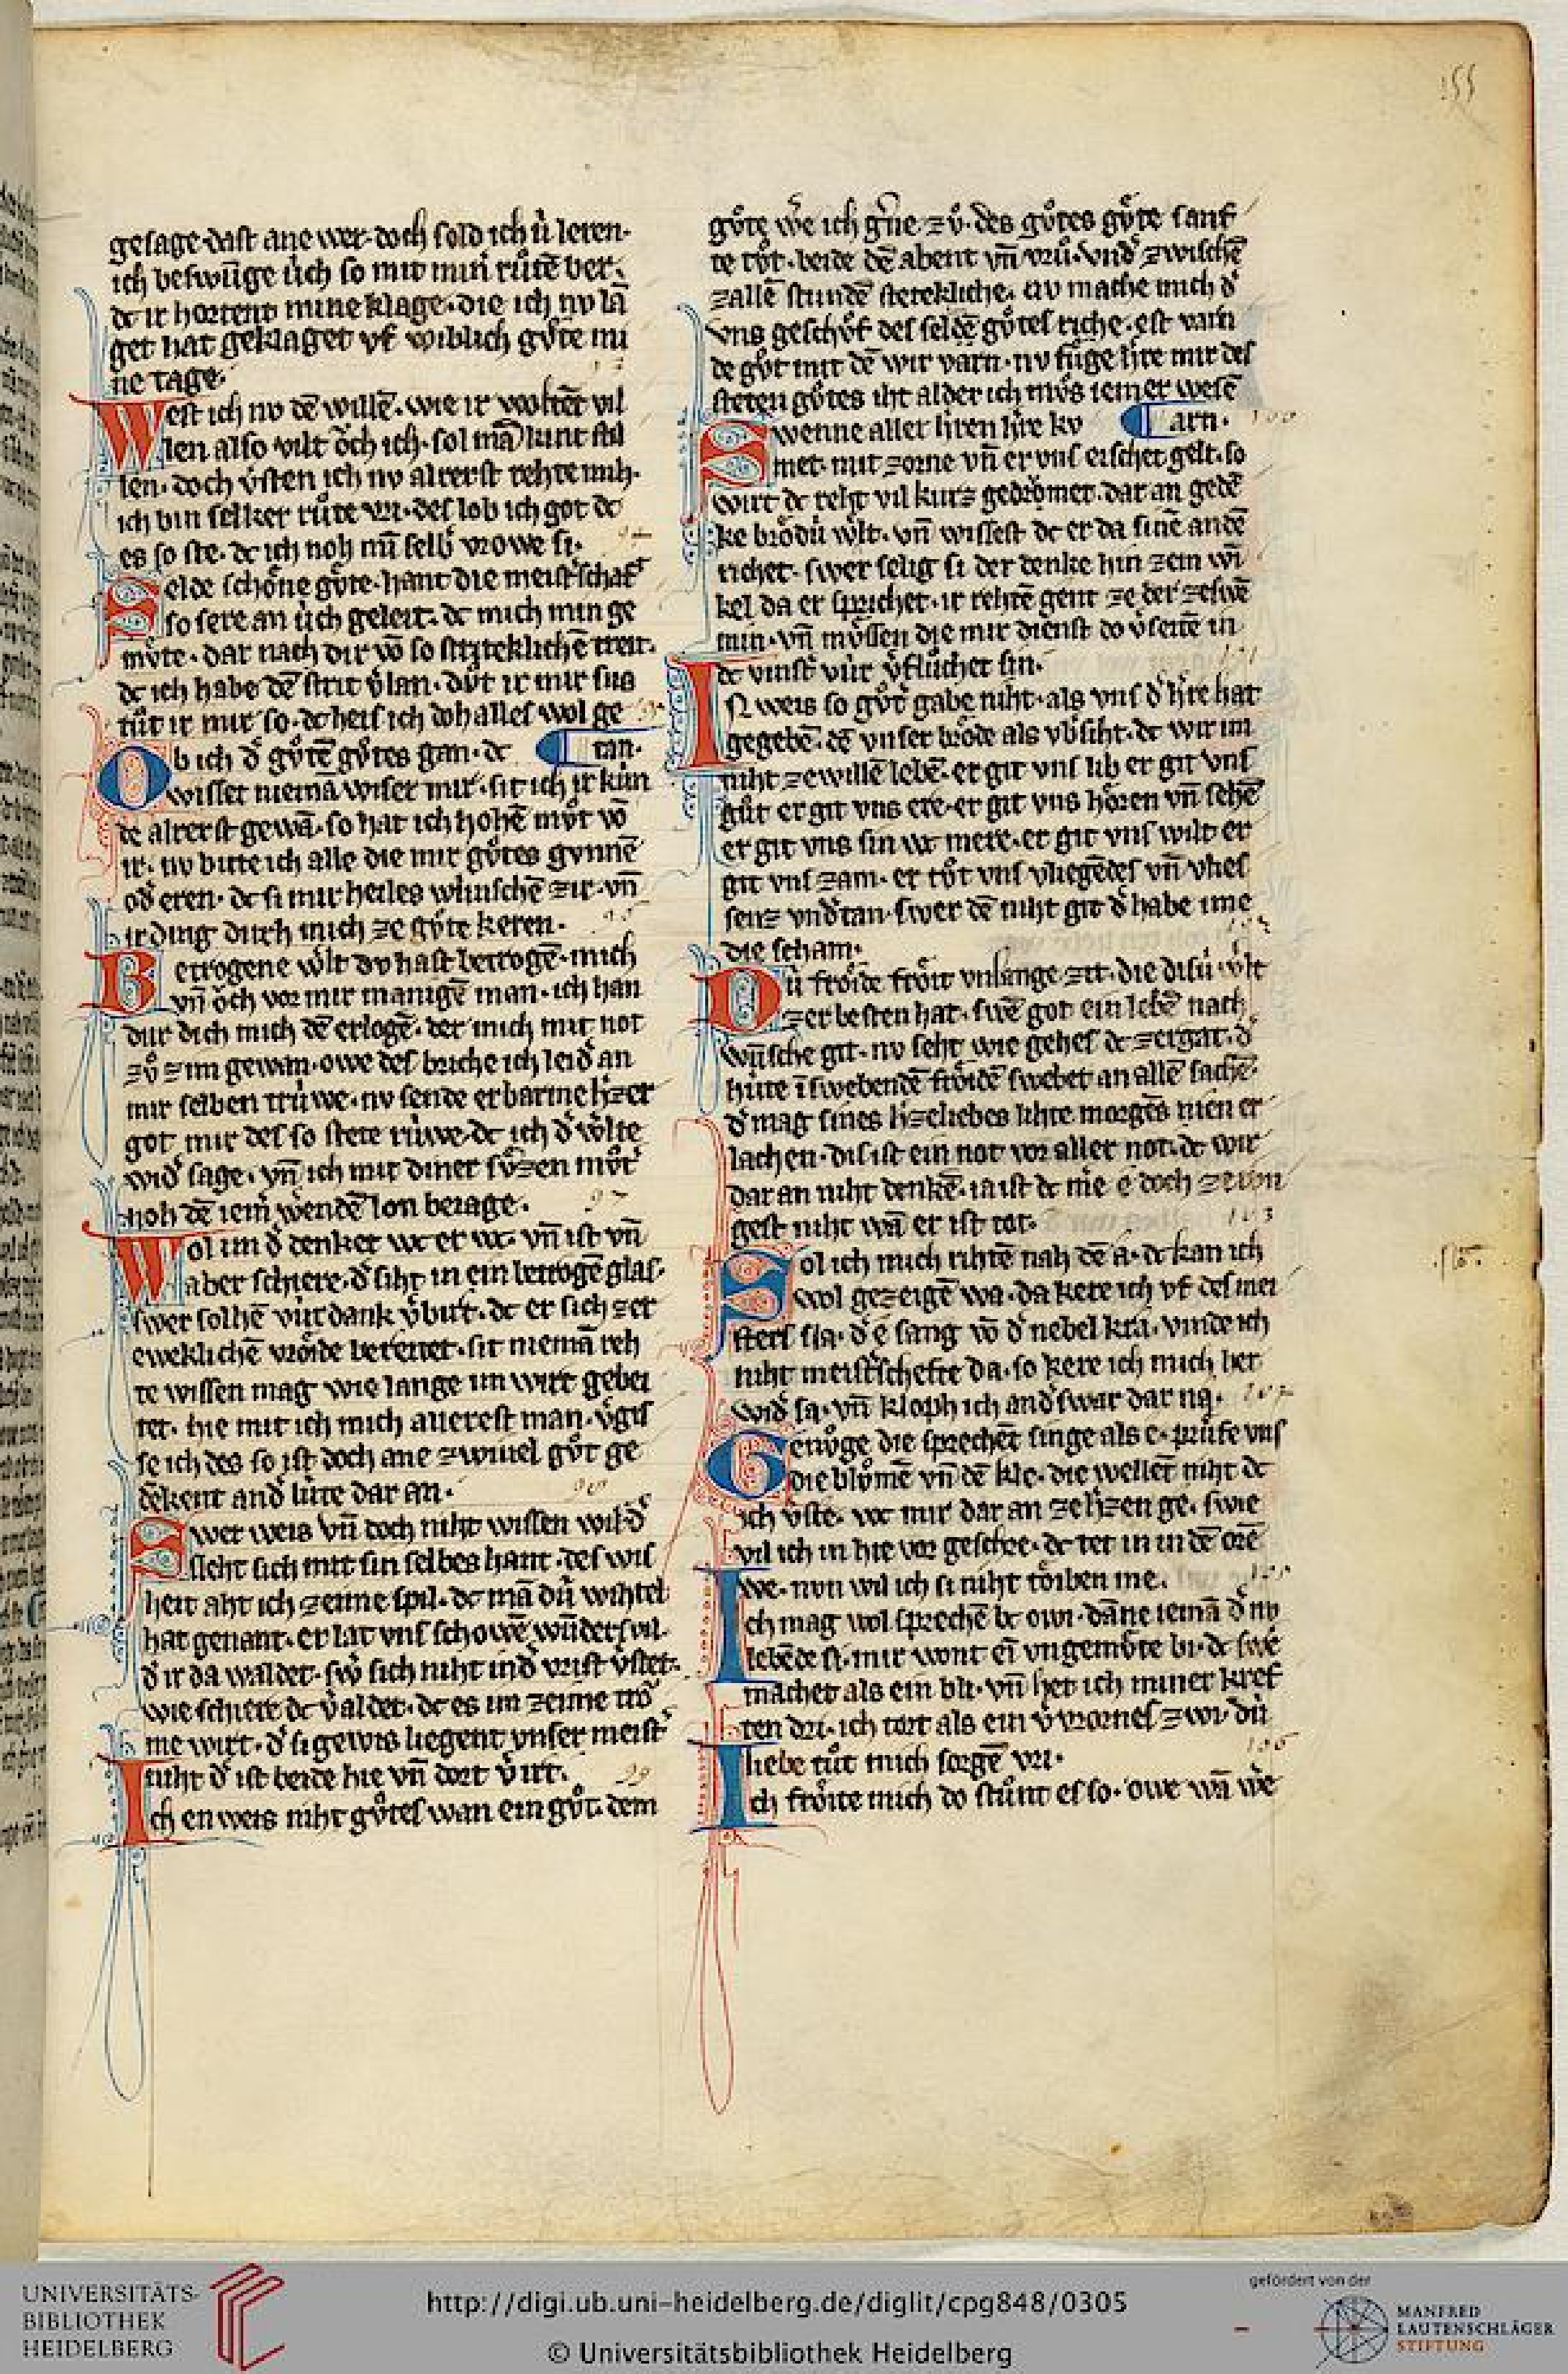 155
gesage·dast ane wer·doch sold ich ú leren·
ich beswúnge úch so mit minr růtē ber·
dc ir hortent mine klage·die ich nv lā
get hat geklaget vf wiblich gv̊te mi
ne tage·
West ich nv dē willē·wie ir woltēt vil
len also vilt ǒch ich·sol mā kint stil
len·doch v̊sten ich nv alrerst rehte mih·
ich bin selker růte vri·des lob ich got dc
es so ste·dc ich noh mī selb vrowe si·
Selde schǒne gǒte·hant die meistschaft
so sere an úch geleit·dc mich min ge
mv̊te·dar nach dur vō so stritekliche treit·
dc ich habe dē strit v̓lan·dv̊t ir mir sus
tůt ir mir so·dc heis ich doh alles wol ge
Ob ich d̓ gv̊tē gv̊tes gan·dc ¶ tan·
wisset niemā wiser mir·sit ich ir kún
de alrerst gewā·so hat ich hohē mv̊t vō
ir·nv bitte ich alle die mir gv̊tes gvnnē
od̓ eren·dc si mir heiles wúnschē zir·vn̄
ir ding durh mich ze gv̊te keren· 95
Betrogene wēlt dv hast betrogē·mich
vn̄ ǒch vor mir manigē man·ich han
dur dich mich dē erlogē·der mich mit not
zv̊ zim gewan·owe des briche ich leid̓ an
mir selben trúwe·nv sende erbarmeh̓zer
got mir des so stete rúwe·dc ich d̓ wēlte
wid̓ sage·vn̄ ich mit diner sv̊zen mv̊t̓
noh dē iem̓ wendē lon beiage· 97
Wol im d̓ denket wc er wc·vn̄ ist vn̄
aber schiere·d̓ siht in ein betrogē glas·
swer solhē vúrdank v̓birt·dc er sich zer
eweklichē vrǒide bereitet·sit niemā reh
te wissen mag wie lange im wirt gebei
tet·hie mit ich mich alrerest man·v̓gis
se ich des so ist doch ane zwiuel gv̊t ge
dēkent and̓ lúte dar an· 98
Swer weis vn̄ doch niht wissen wil·d̓
sleht sich mit sin selbes hant·des wis
heit aht ich zeime spil·dc mā dú wihtel
hat genant·er lat vns schowē wūders vil·
d̓ ir da waldet·sw̓ sich niht ind̓ vrist v̓stet·
wie schiere dc v̓aldet·dc es im zeime trǒ
me wirt·d̓ si gewis liegent vnser meist̓
niht d̓ ist beide hie vn̄ dort v̓irt· 99
Ich en weis niht gv̊tes wan ein gv̊t·dem
gv̊te w̓e ich g̓ne zv̊·des gv̊tes gv̊te sanf
te tv̊t·beide dē abent vn̄ vrů·vnd̓ zwischē
zallē stundē stetekliche·nv mache mich d̓
vns geschv̊f des seldē gv̊tes riche·est varn
de gv̊t mit dē wir varn·nv fůge h̓re mir des
steten gv̊tes iht alder ich mv̊s iemer wesē
Swenne aller h̓ren h̓re kv ¶ arn· 100
met·mit zorne vn̄ er vns eischet gelt·so
wirt dc reht vil kurz gedrǒmet·dar an gedē
ke brǒdú wēlt·vn̄ wissest dc er da sinē andē
richet·swer selig si der denke hin zem wi
kel da er sprichet·ir rehtē gent ze der zeswē
min·vn̄ mv̊ssen die mir dienst do v̓seitē in
dc vinst̓ vúr v̓flůchet sin· 101
IN weis so gv̊t gabe niht·als vns d̓ h̓re hat
gegebē·dē vnser brǒde als vb̓siht·dc wir im
niht ze willē lebē·er git vns lib er git vns
gůt er git vns ere·er git vns hǒren vn̄ sehē
er git vns sin wc mere·er git vns wilt er
git vns zam·er tůt vns vliegēdes vn̄ vlies
senz vnd̓tan·swer dē niht git d̓ habe ime
die scham·
Dú frǒide frǒit vnlange zit·die disú wēlt
zer besten hat·swē got ein lebē nach
wūsche git·nv seht wie gehes dc zergat·d̓
húte ī swebendē frǒidē swebet an allē sachē·
d̓ mag sines h̓zeliebes lihte morgēs nien er
lachen·dis ist ein not vor aller not·dc wir
dar an niht denkē·ia ist dc nie e doch ze ivn
gest niht wā er ist tot· 103
Sol ich mich rihtē nah dē a·dc kan ich
wol gezeigē wa·da kere ich vf des mei
sters sla·d̓ e sang vō d̓ nebel kra·vinde ich
niht meist̓schefte da·so kere ich mich her
wid̓ sa·vn̄ kloph ich and̓swar dar na· 104
Genv̊ge die sprechēt singe als e·prúfe vns
die blůmē vn̄ dē kle·die wellēt niht dc
ich v̓ste·wc mir dar an ze h̓zen ge·swie
vil ich in hie vor geschre·dc tet in in dē orē
we·nvn wil ich si niht tǒiben me· 105
Ich mag wol sprechē dc owi·dāne iemā d̓ nv
lebēde si·mir wont eī vngemv̊te bi·dc swe
machet als ein bli·vn̄ het ich miner kref
ten dri·ich tort als ein v̓vrornes zwi·dú
liebe tůt mich sorgē vri· 106
Ich frǒite mich do stůnt es so·owe wā w̓e
UNIVERSITÄTS-
BIBLIOTHEK
HEIDELBERG
http://digi.ub.uni-heidelberg.de/diglit/cpg848/0305
© Universitätsbibliothek Heidelberg
gefördert von der
MANFRED
LAUTENSCHLÄGER
STIFTUNG